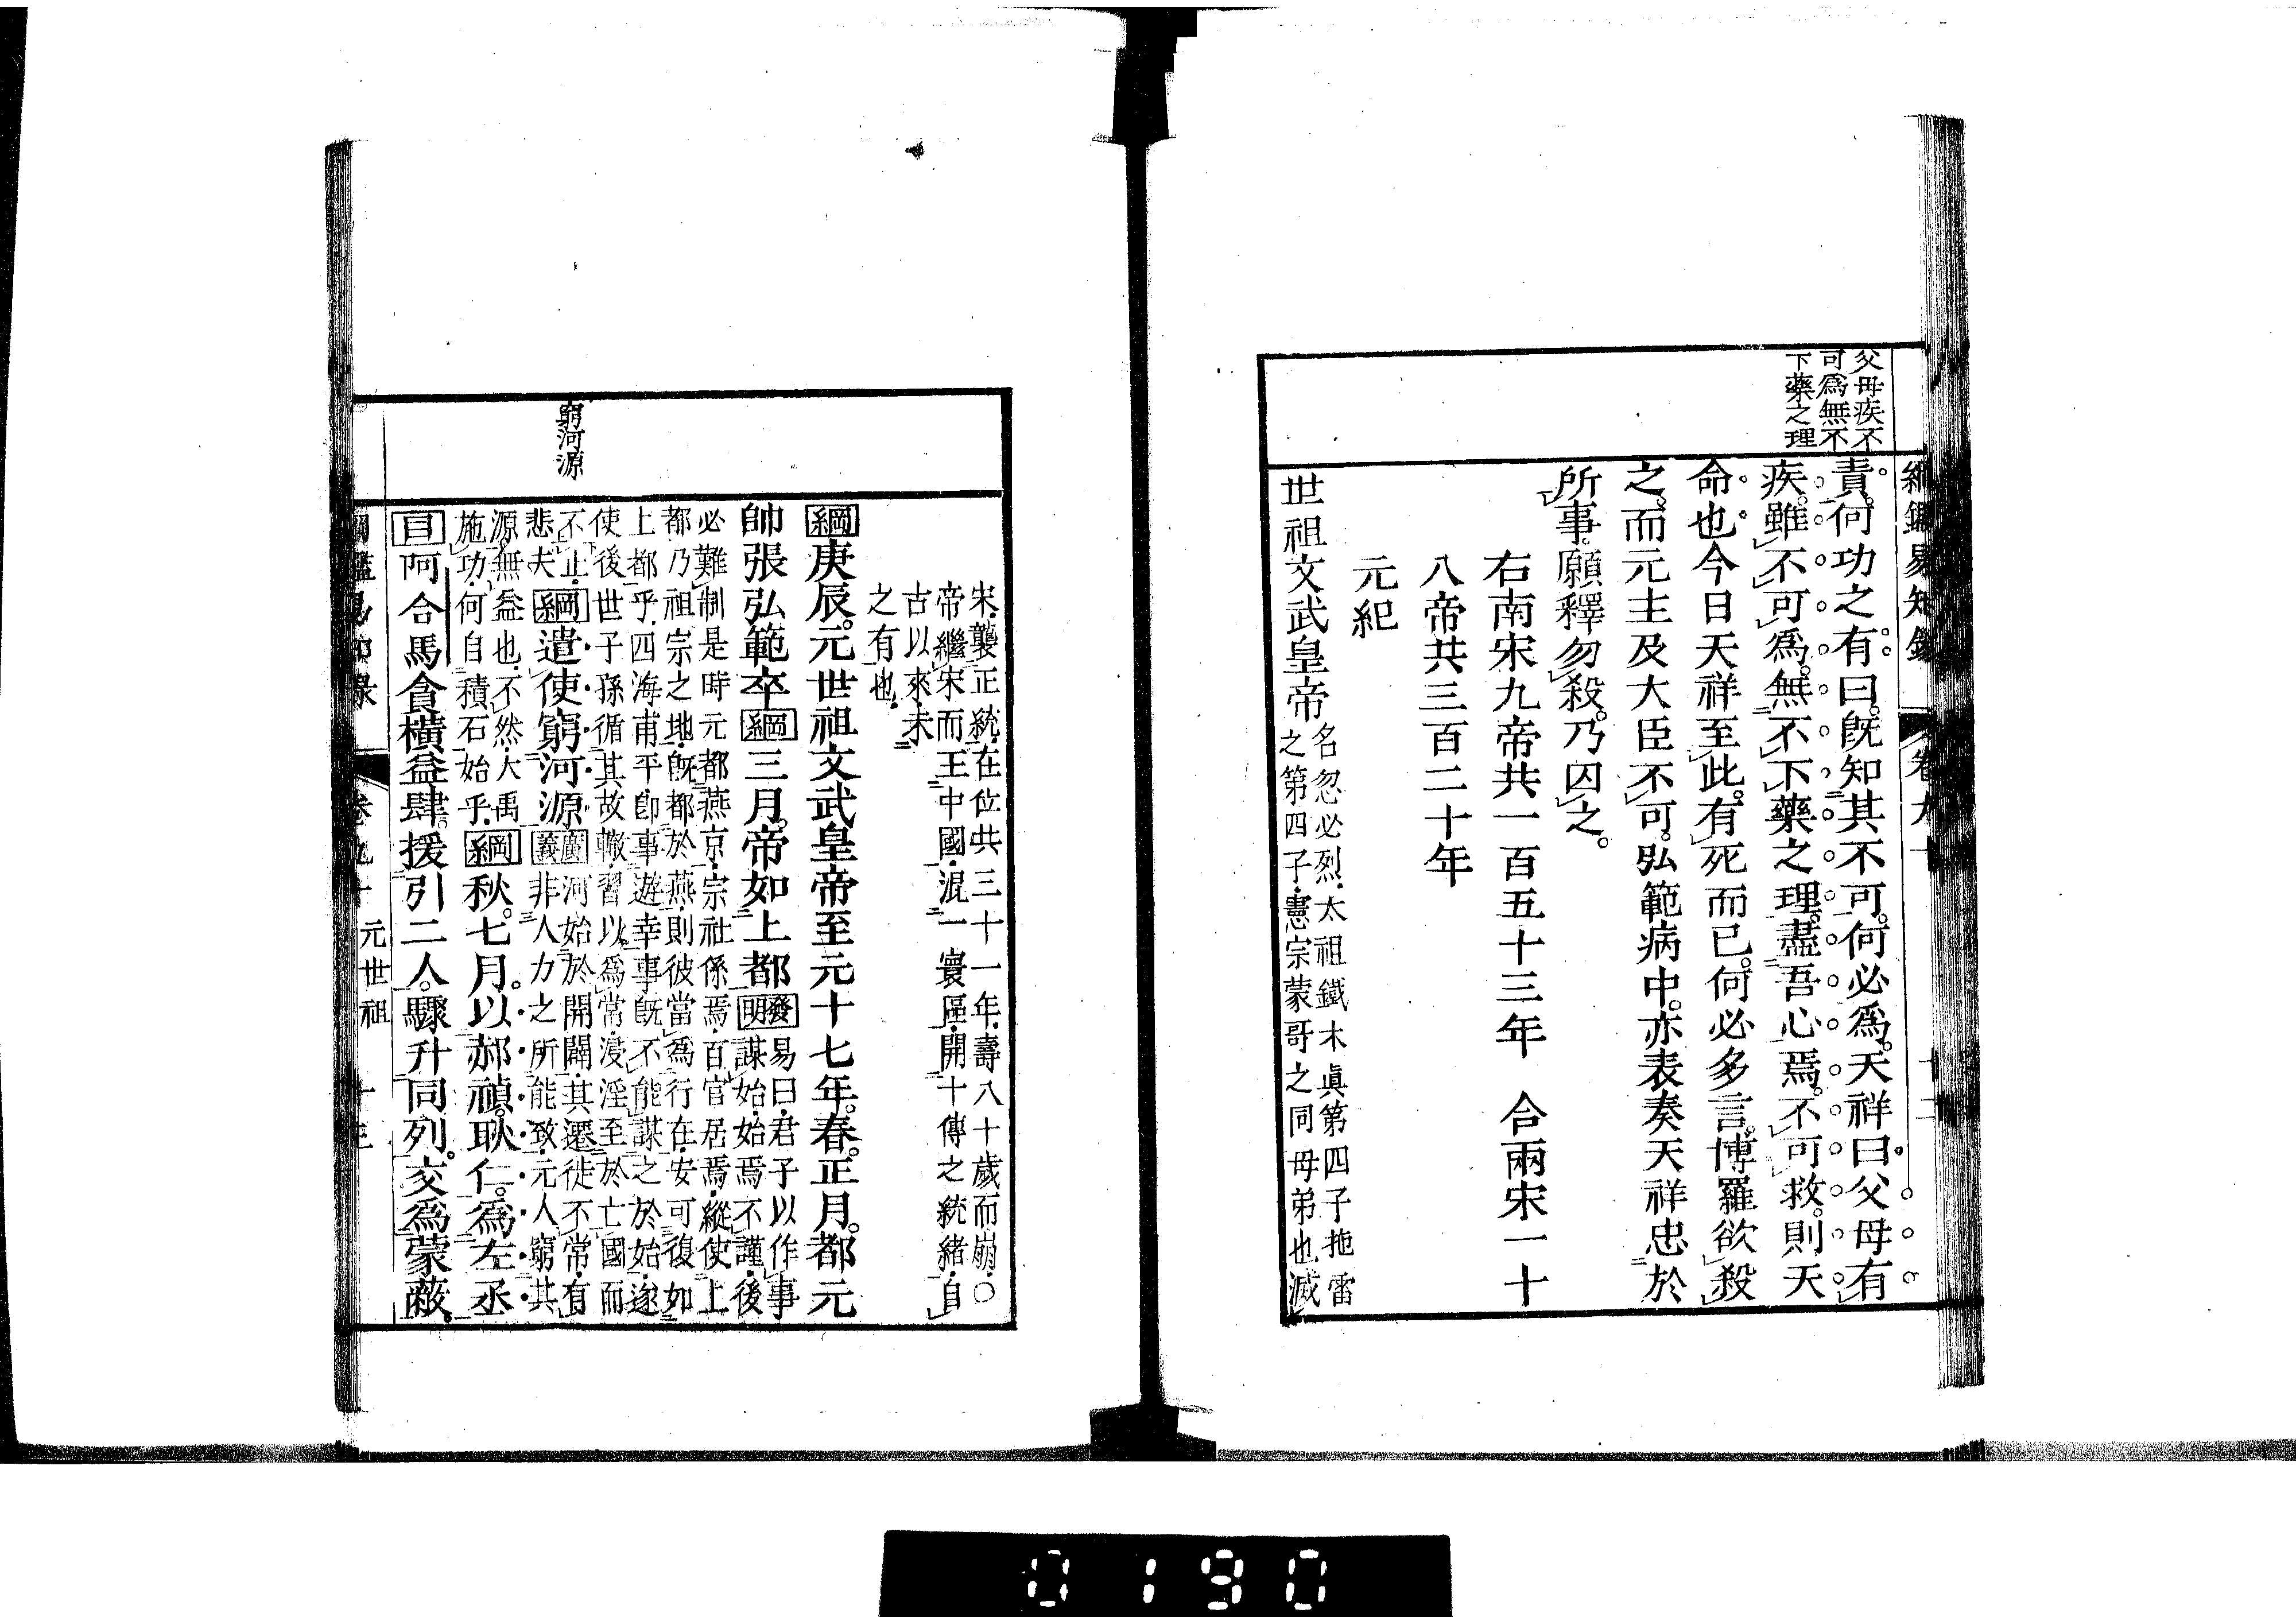 父母疾不
可爲無不
下藥之理
綱鑑易知錄 卷九十 十二
責。何功之有。曰。旣知其不可。何必爲。天祥曰。父母有
疾。雖不可爲。無不下藥之理。盡吾心焉。不可救。則天
命也。今日天祥至此。有死而已。何必多言。博羅欲殺
之。而元主及大臣不可。弘範病中。亦表奏天祥忠於
所事。願釋勿殺。乃囚之。
右南宋九帝共一百五十三年 合兩宋一十
八帝共三百二十年
元紀
世祖文武皇帝 名忽必烈。太祖鐵木眞第四子拖雷
之第四子。憲宗蒙哥之同母弟也。滅
宋。襲正統。在位共三十一年。壽八十歲而崩。○
帝繼宋而王中國。混一寰區。開十傳之統緒。自
古以來。未
之有也。
窮河源
綱庚辰。元世祖文武皇帝至元十七年。春。正月。都元
帥張弘範卒 綱三月。帝如上都 發明 易曰。君子以作事
謀始。始焉不謹。後
必難制。是時元都燕京。宗社係焉。百官居焉。縱使上
都乃祖宗之地。旣都於燕。則彼當爲行在。安可復如
上都乎。四海甫平。卽事遊幸。事旣不能謀之於始。遂
使後世子孫循其故轍。習以爲常。浸淫至於亡國而
不止。
悲夫 綱遣使窮河源 廣義 河始於開闢。其遷徙不常。有
非人力之所能致。元人窮其
源。無益也。不然。大禹
施功。何自積石始乎。綱秋。七月。以郝禎。耿仁。爲左丞
目阿合馬貪橫益肆。援引二人。驟升同列。交爲蒙蔽。
綱鑑易知錄 卷九十 元世祖 十三
0190